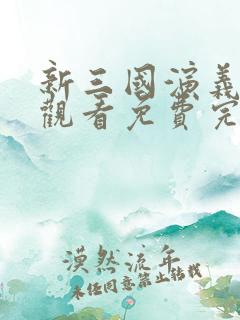 新三國演義
觀看免費完
漠然流年
未经同意禁止转载